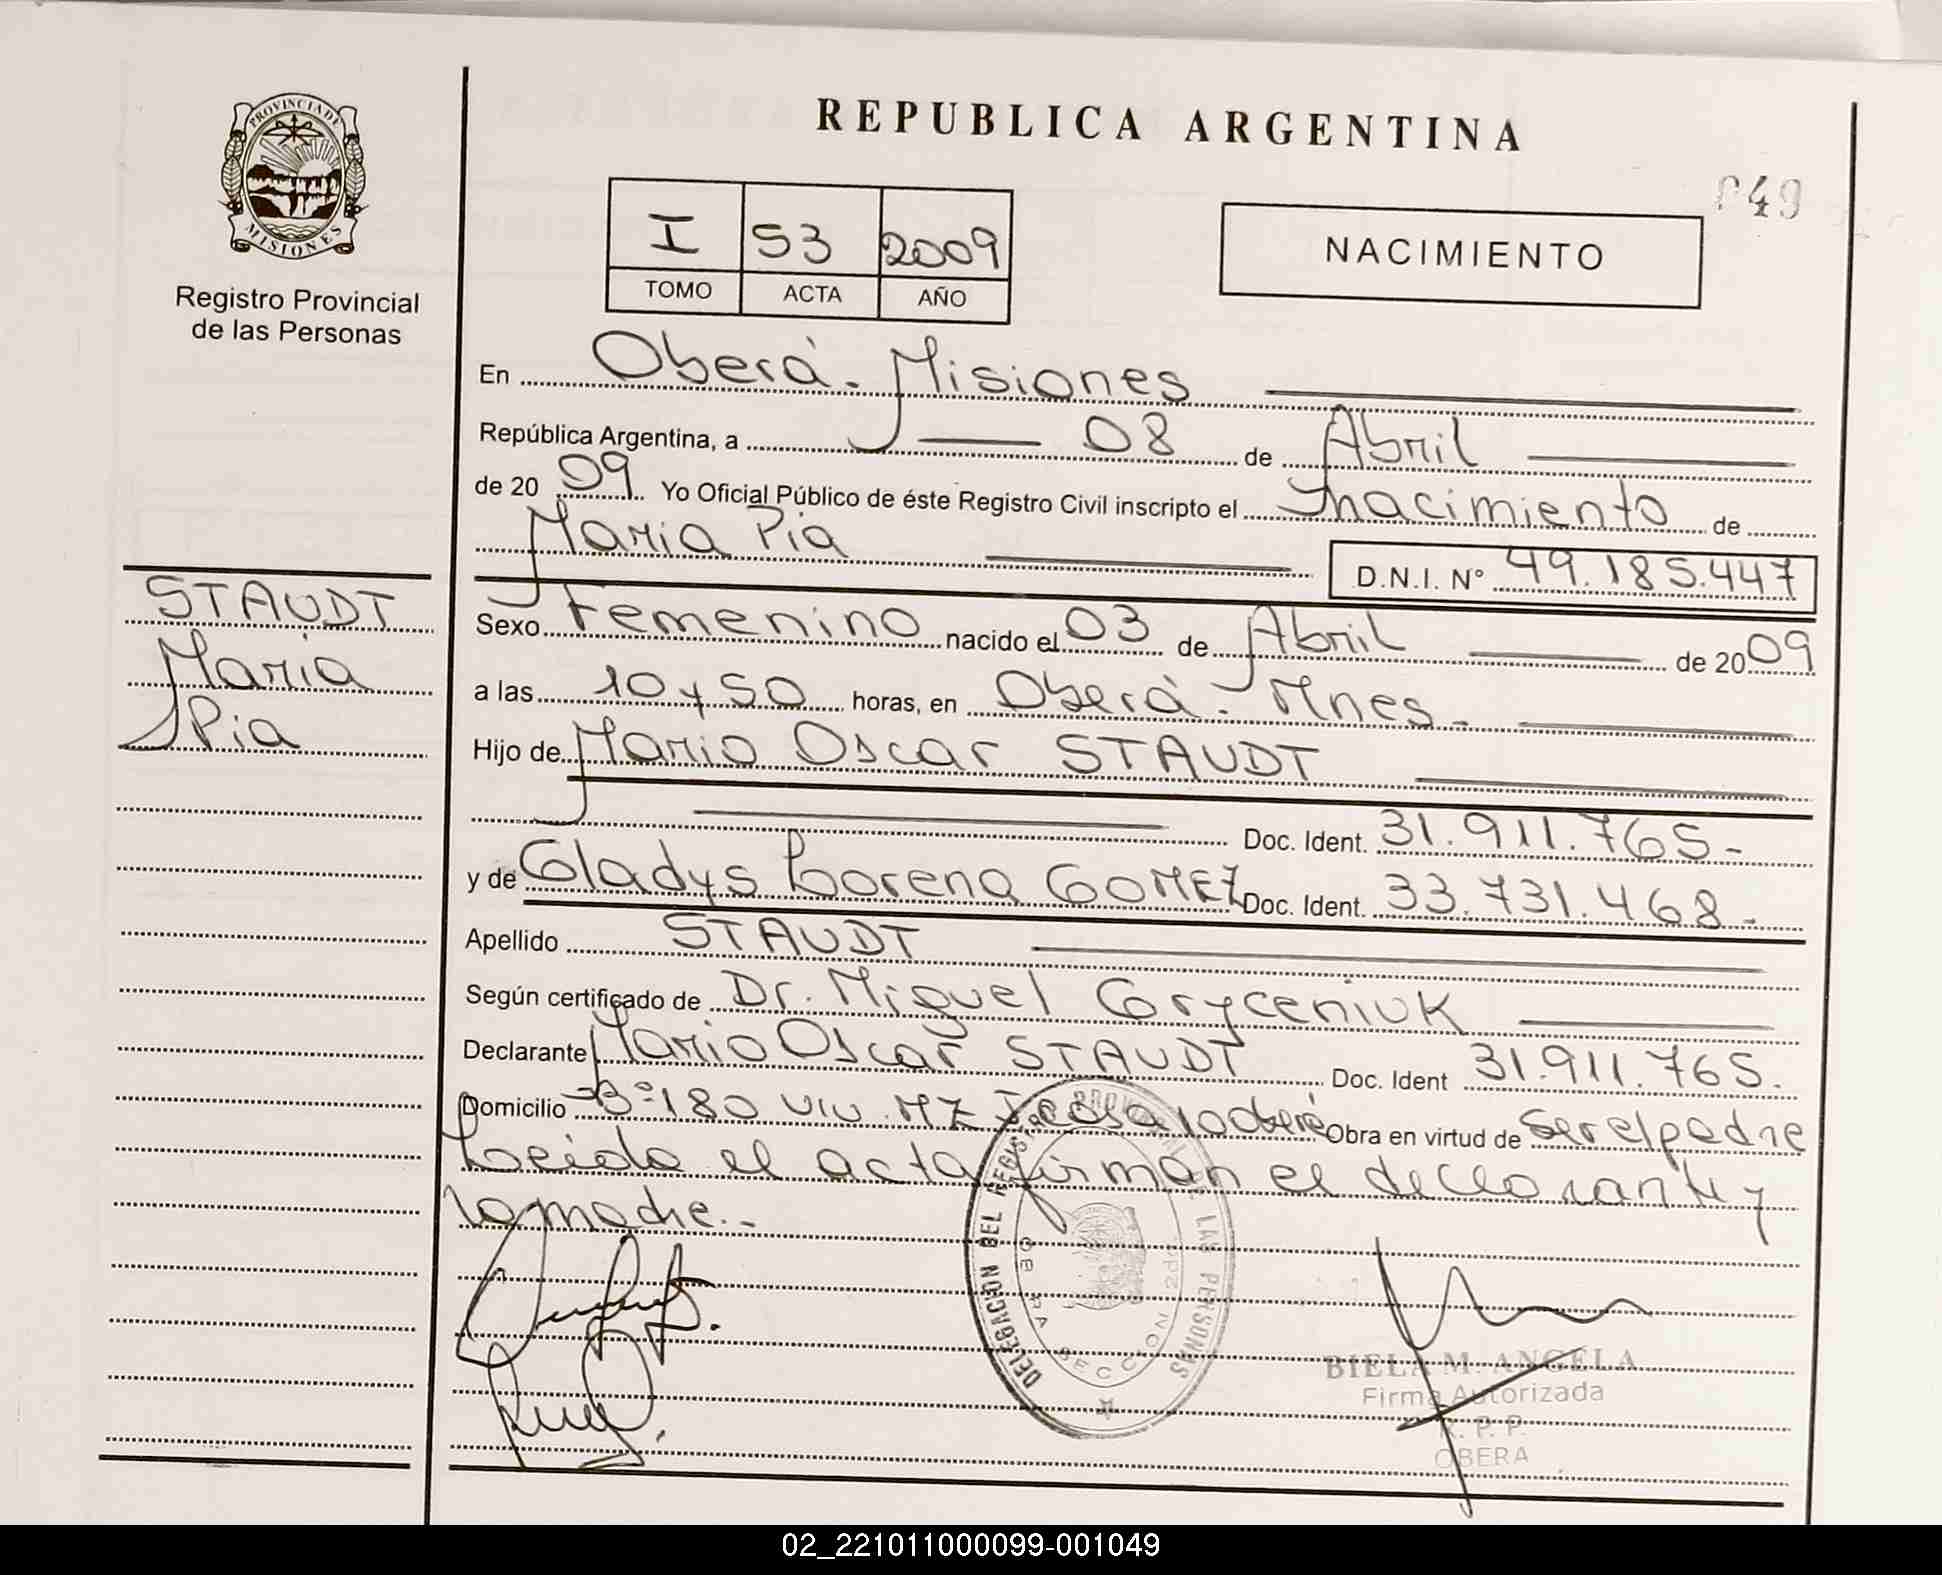 REPUBLICA ARGENTINA
PROVINCIA DE
MISIONES
Registro Provincial
de las Personas
049
I 53 2009
TOMO ACTA AÑO
NACIMIENTO
En Oberá - Misiones
República Argentina, a 08 de Abril
de 2009 Yo Oficial Público de éste Registro Civil inscripto el nacimiento de
Maria Pia D.N.I. Nº 49.185.447
STAUDT
Maria
Pia
Sexo Femenino nacido el 03 de Abril de 2009
a las 10 y 50 horas, en Oberá - Mnes -
Hijo de Mario Oscar STAUDT
Doc. Ident. 31.911.765 -
y de Gladys Lorena GOMEZ Doc. Ident. 33.731.468 -
Apellido STAUDT
Según certificado de Dr. Miguel Coryceniuk
Declarante Mario Oscar STAUDT Doc. Ident 31.911.765.
Domicilio Bº 180 viv. MZ J casa 10 Oberá Obra en virtud de ser el padre
Leida el acta firman el declarante y
la madre. -
DELEGACION DEL REGISTRO PROVINCIAL DE LAS PERSONAS
OBERA SECCION
BIELA M. ANGELA
Firma Autorizada
R. P. P.
OBERA
02_221011000099-001049